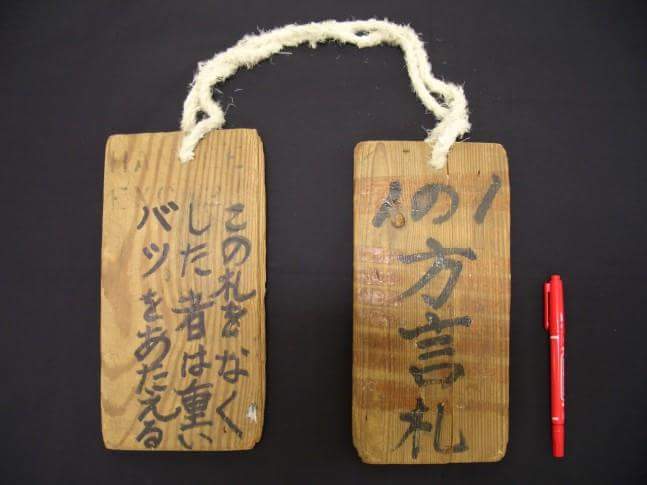 この札をなく
した者は重い
バツをあたえる
の1
方言札